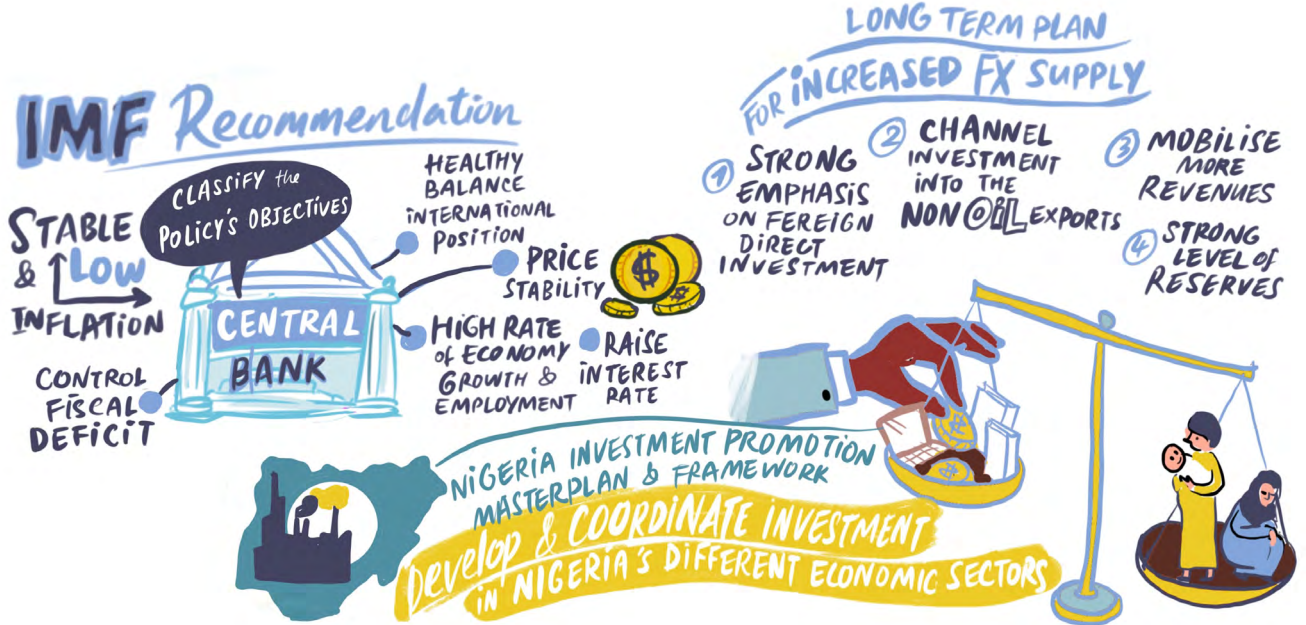 IMF Recommendation
CLASSIFY the
POLICY'S OBJECTIVES
STABLE
& LOW
INFLATION
CENTRAL
BANK
CONTROL
FISCAL
DEFICIT
HEALTHY
BALANCE
INTERNATIONAL
POSITION
PRICE
STABILITY
$
HIGH RATE
of ECONOMY
GROWTH &
EMPLOYMENT
RAISE
INTEREST
RATE
LONG TERM PLAN
FOR INCREASED FX SUPPLY
1 STRONG
EMPHASIS
ON FEREIGN
DIRECT
INVESTMENT
2 CHANNEL
INVESTMENT
INTO THE
NON OIL EXPORTS
3 MOBILISE
MORE
REVENUES
4 STRONG
LEVEL of
RESERVES
NIGERIA INVESTMENT PROMOTION
MASTERPLAN & FRAMEWORK
Develop & COORDINATE INVESTMENT
IN NIGERIA'S DIFFERENT ECONOMIC SECTORS